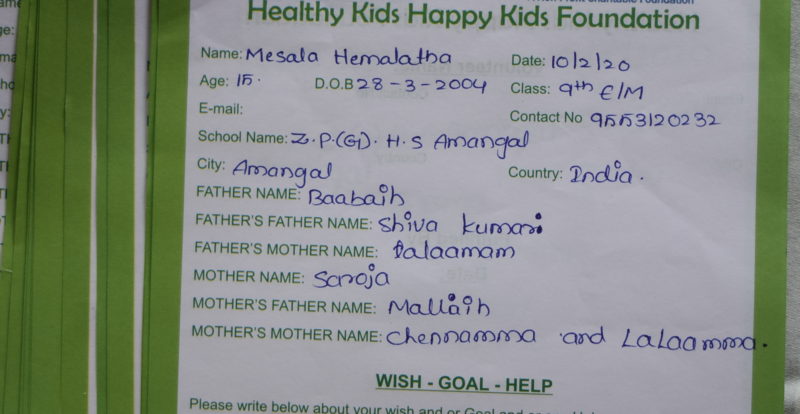 Healthy Kids Happy Kids Foundation
Name: Mesala Hemalatha Date: 10/2/20
Age: 15. D.O.B 28-3-2004 Class: 9th E/M
E-mail: Contact No 9553120232
School Name: Z.P.(G). H.S Amangal
City: Amangal Country: India.
FATHER NAME: Baabaih
FATHER'S FATHER NAME: Shiva kumari
FATHER'S MOTHER NAME: Balaamam
MOTHER NAME: Saroja
MOTHER'S FATHER NAME: Mallaih
MOTHER'S MOTHER NAME: Chennamma and LaLaamma.
WISH - GOAL - HELP
Please write below about your wish and or Goal and